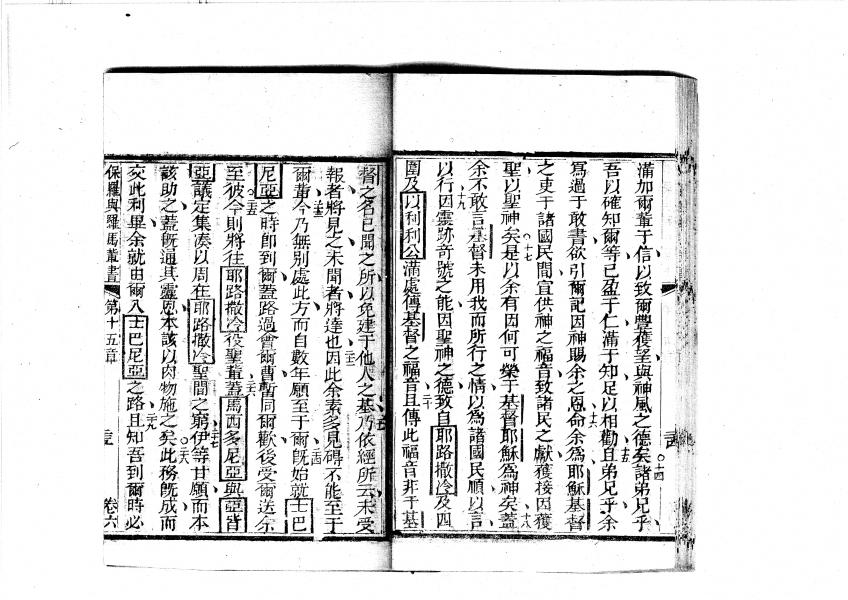 滿加爾輩于信以致爾豐獲望與神風之德矣諸弟兄乎
吾以確知爾等已盈于仁滿于知足以相勸且弟兄乎余
寫過于敢書欲引爾記因神賜余之恩命余為耶穌基督
之吏于諸國民間宣供神之福音致諸民之獻獲接因獲
聖以聖神矣是以余有因何可榮于基督耶穌為神矣蓋
余不敢言基督未用我而所行之情以為諸國民順以言
以行因靈跡奇號之能因聖神之德致自耶路撒冷及四
圍及以利利公滿處傳基督之福音且傳此福音非于基
督之名已聞之所以免建于他人之基乃依經所云未受
報者將見之未聞者將達也因此余素多見碍不能至于
爾輩今乃無別處此方而自數年願至于爾既始就士巴
尼亞之時即到爾蓋路過會爾曹暫同爾歡後受爾送余
至彼今則將往耶路撒冷役聖輩蓋馬西多尼亞與亞背
亞議定集湊以周在耶路撒冷聖間之窮伊等甘願而本
該助之蓋既通其靈恩本該以肉物施之矣此務既成而
交此利畢余就由爾入士巴尼亞之路且知吾到爾時必
保羅與羅馬輩書 第十五章 卷六